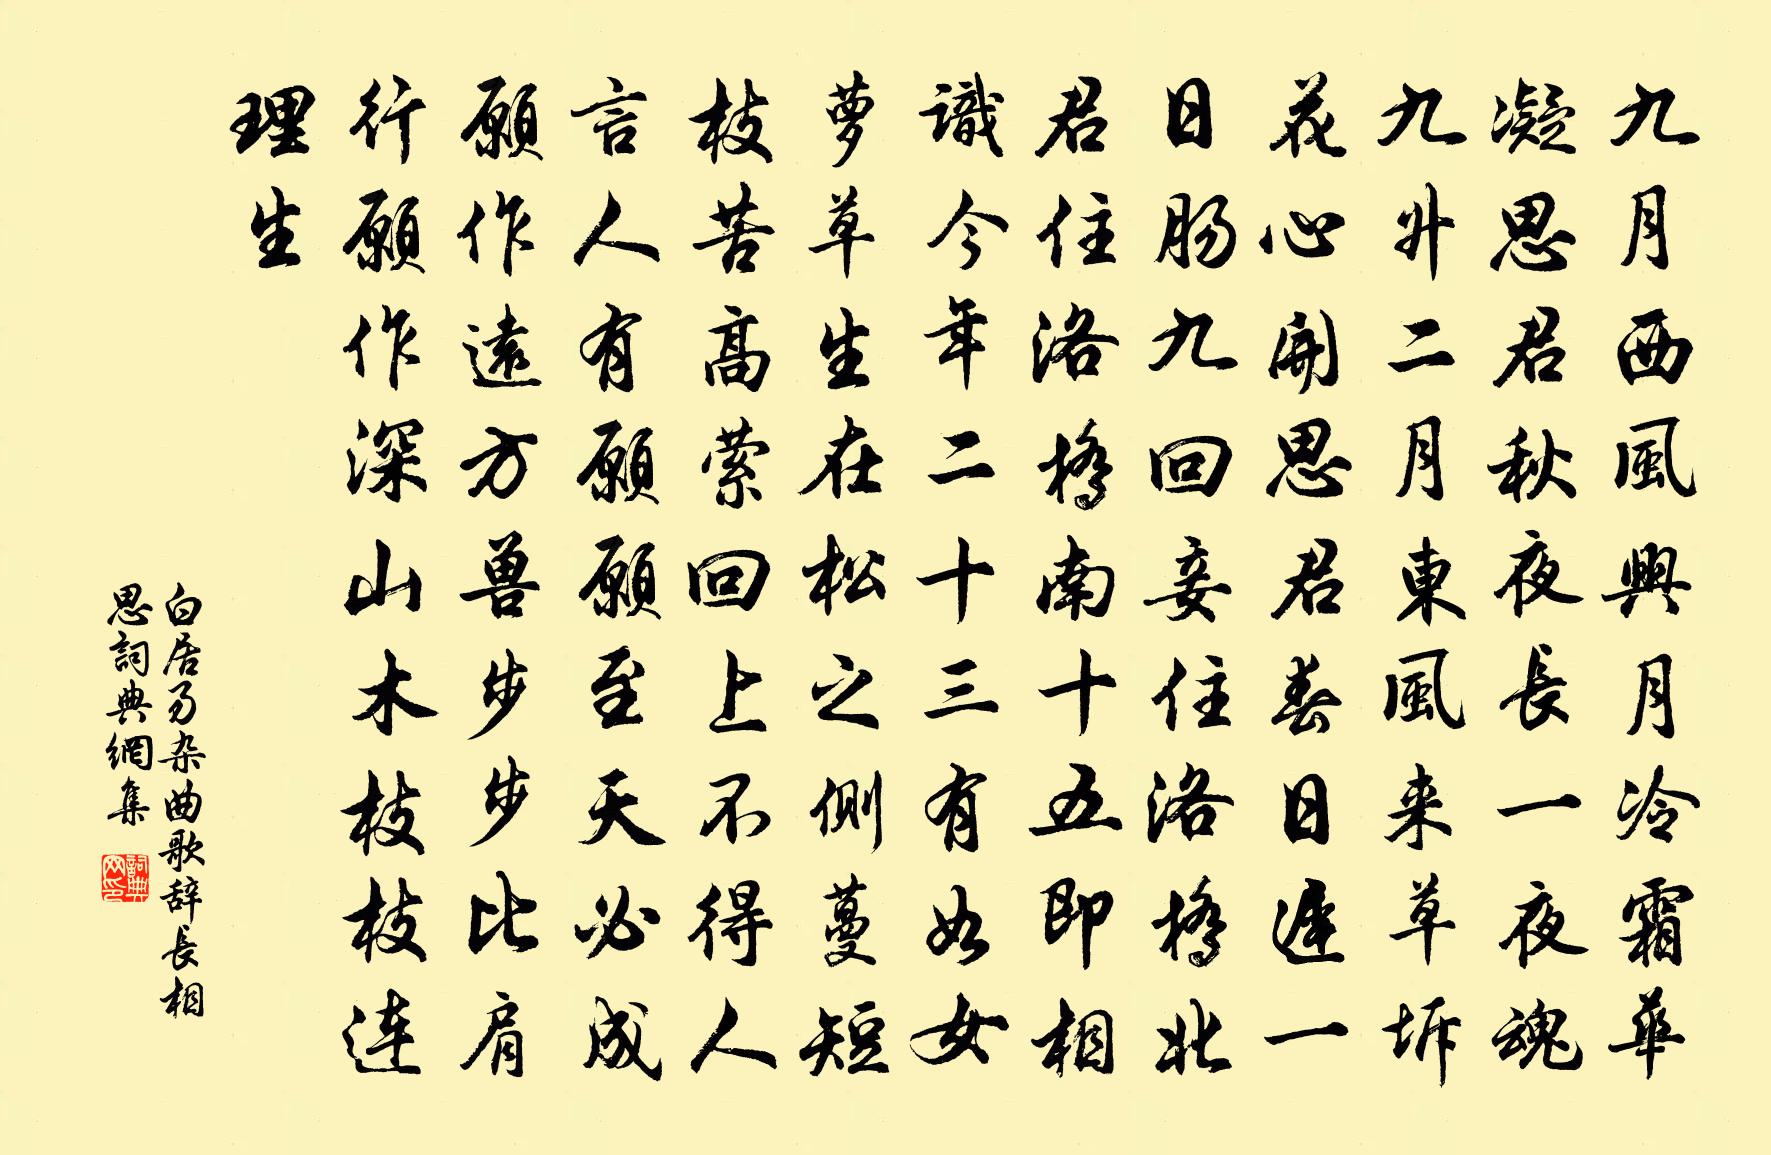 九月西風興月冷霜華
凝思君秋夜長一夜魂
九升二月東風来草坼
花心開思君春日遲一
日肠九回妾住洛橋北
君住洛橋南十五即相
識今年二十三有如女
萝草生在松之側蔓短
枝苦高萦回上不得人
言人有願願至天必成
願作遠方兽步步比肩
行願作深山木枝枝連
理生
白居易杂曲歌辞長相
思詞典網集
詞典
网印